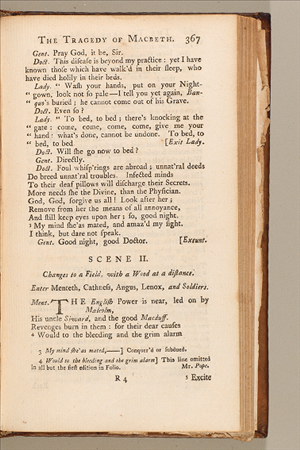 THE TRAGEDY OF MACBETH. 367
Gent. Pray God, it be, Sir.
Doct. This diſeaſe is beyond my practice : yet I have
known thoſe which have walk'd in their ſleep, who
have died holily in their beds.
Lady. " Waſh your hands, put on your Night-
" gown, look not ſo pale—I tell you yet again, Ban-
quo's buried ; he cannot come out of his Grave.
Doct. Even ſo ?
Lady. " To bed, to bed ; there's knocking at the
" gate : come, come, come, come, give me your
" hand : what's done, cannot be undone. To bed, to
" bed, to bed [Exit Lady.
Doct. Will ſhe go now to bed ?
Gent. Directly.
Doct. Foul whiſp'rings are abroad ; unnat'ral deeds
Do breed unnat'ral troubles. Infected minds
To their deaf pillows will diſcharge their Secrets.
More needs ſhe the Divine, than the Phyſician.
God, God, forgive us all ! Look after her ;
Remove from her the means of all annoyance,
And ſtill keep eyes upon her ; ſo, good night.
3 My mind ſhe'as mated, and amaz'd my ſight.
I think, but dare not ſpeak.
Gent. Good night, good Doctor. [Exeunt.
SCENE II.
Changes to a Field, with a Wood at a diſtance.
Enter Menteth, Cathneſs, Angus, Lenox, and Soldiers.
Ment. THE Engliſh Power is near, led on by
Malcolm,
His uncle Siward, and the good Macduff.
Revenges burn in them : for their dear cauſes
4 Would to the bleeding and the grim alarm
3 My mind ſhe'as mated,——] Conquer'd or ſubdued.
4 Would to the bleeding and the grim alarm] This line omitted
in all but the firſt edition in Folio. Mr. Pope.
R 4 1 Excite